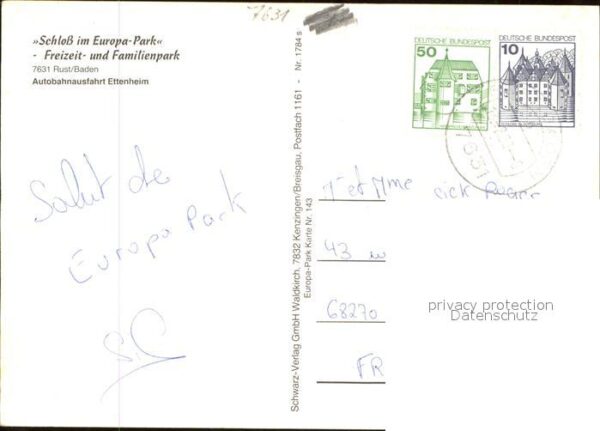 7631
»Schloß im Europa-Park«
- Freizeit- und Familienpark
7631 Rust/Baden
Autobahnausfahrt Ettenheim
Salut de
Europa Park
Schwarz-Verlag GmbH Waldkirch, 7832 Kenzingen/Breisgau, Postfach 1161 - Nr. 1784 s
Europa-Park Karte Nr. 143
DEUTSCHE BUNDESPOST
50
DEUTSCHE BUNDESPOST
10
7631
et Mme
43
68270
FR
privacy protection
Datenschutz